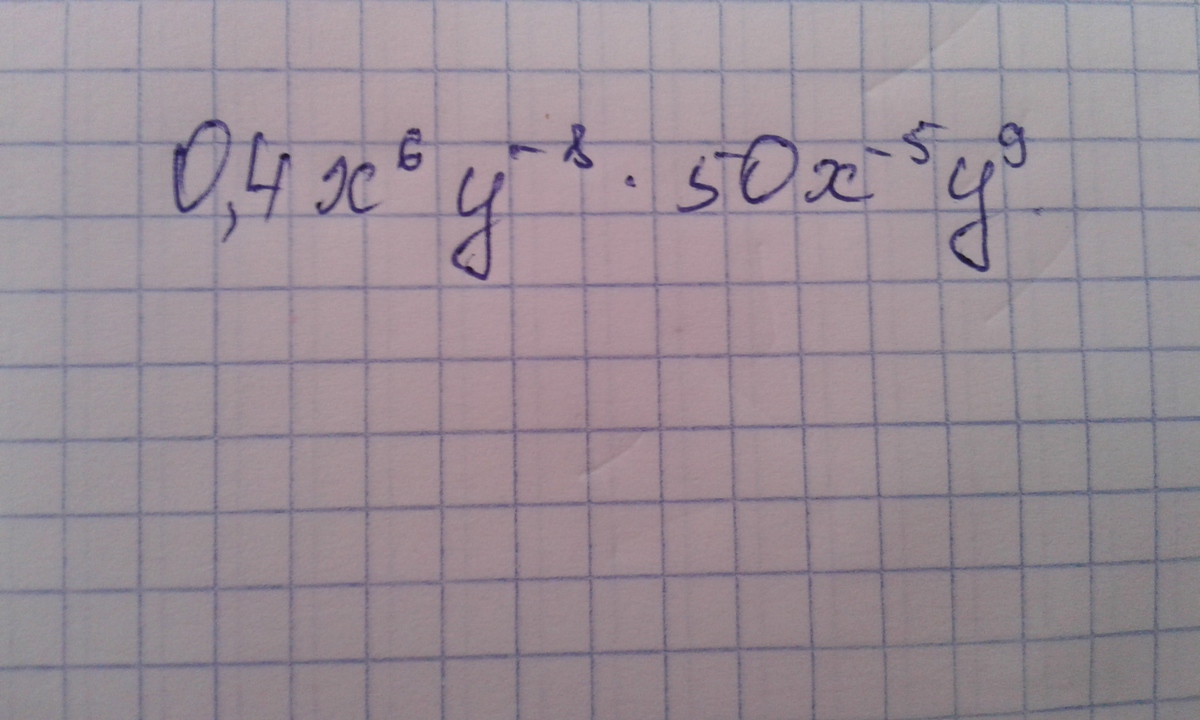 0,4x⁶y⁻⁸ · 50x⁻⁵y⁹